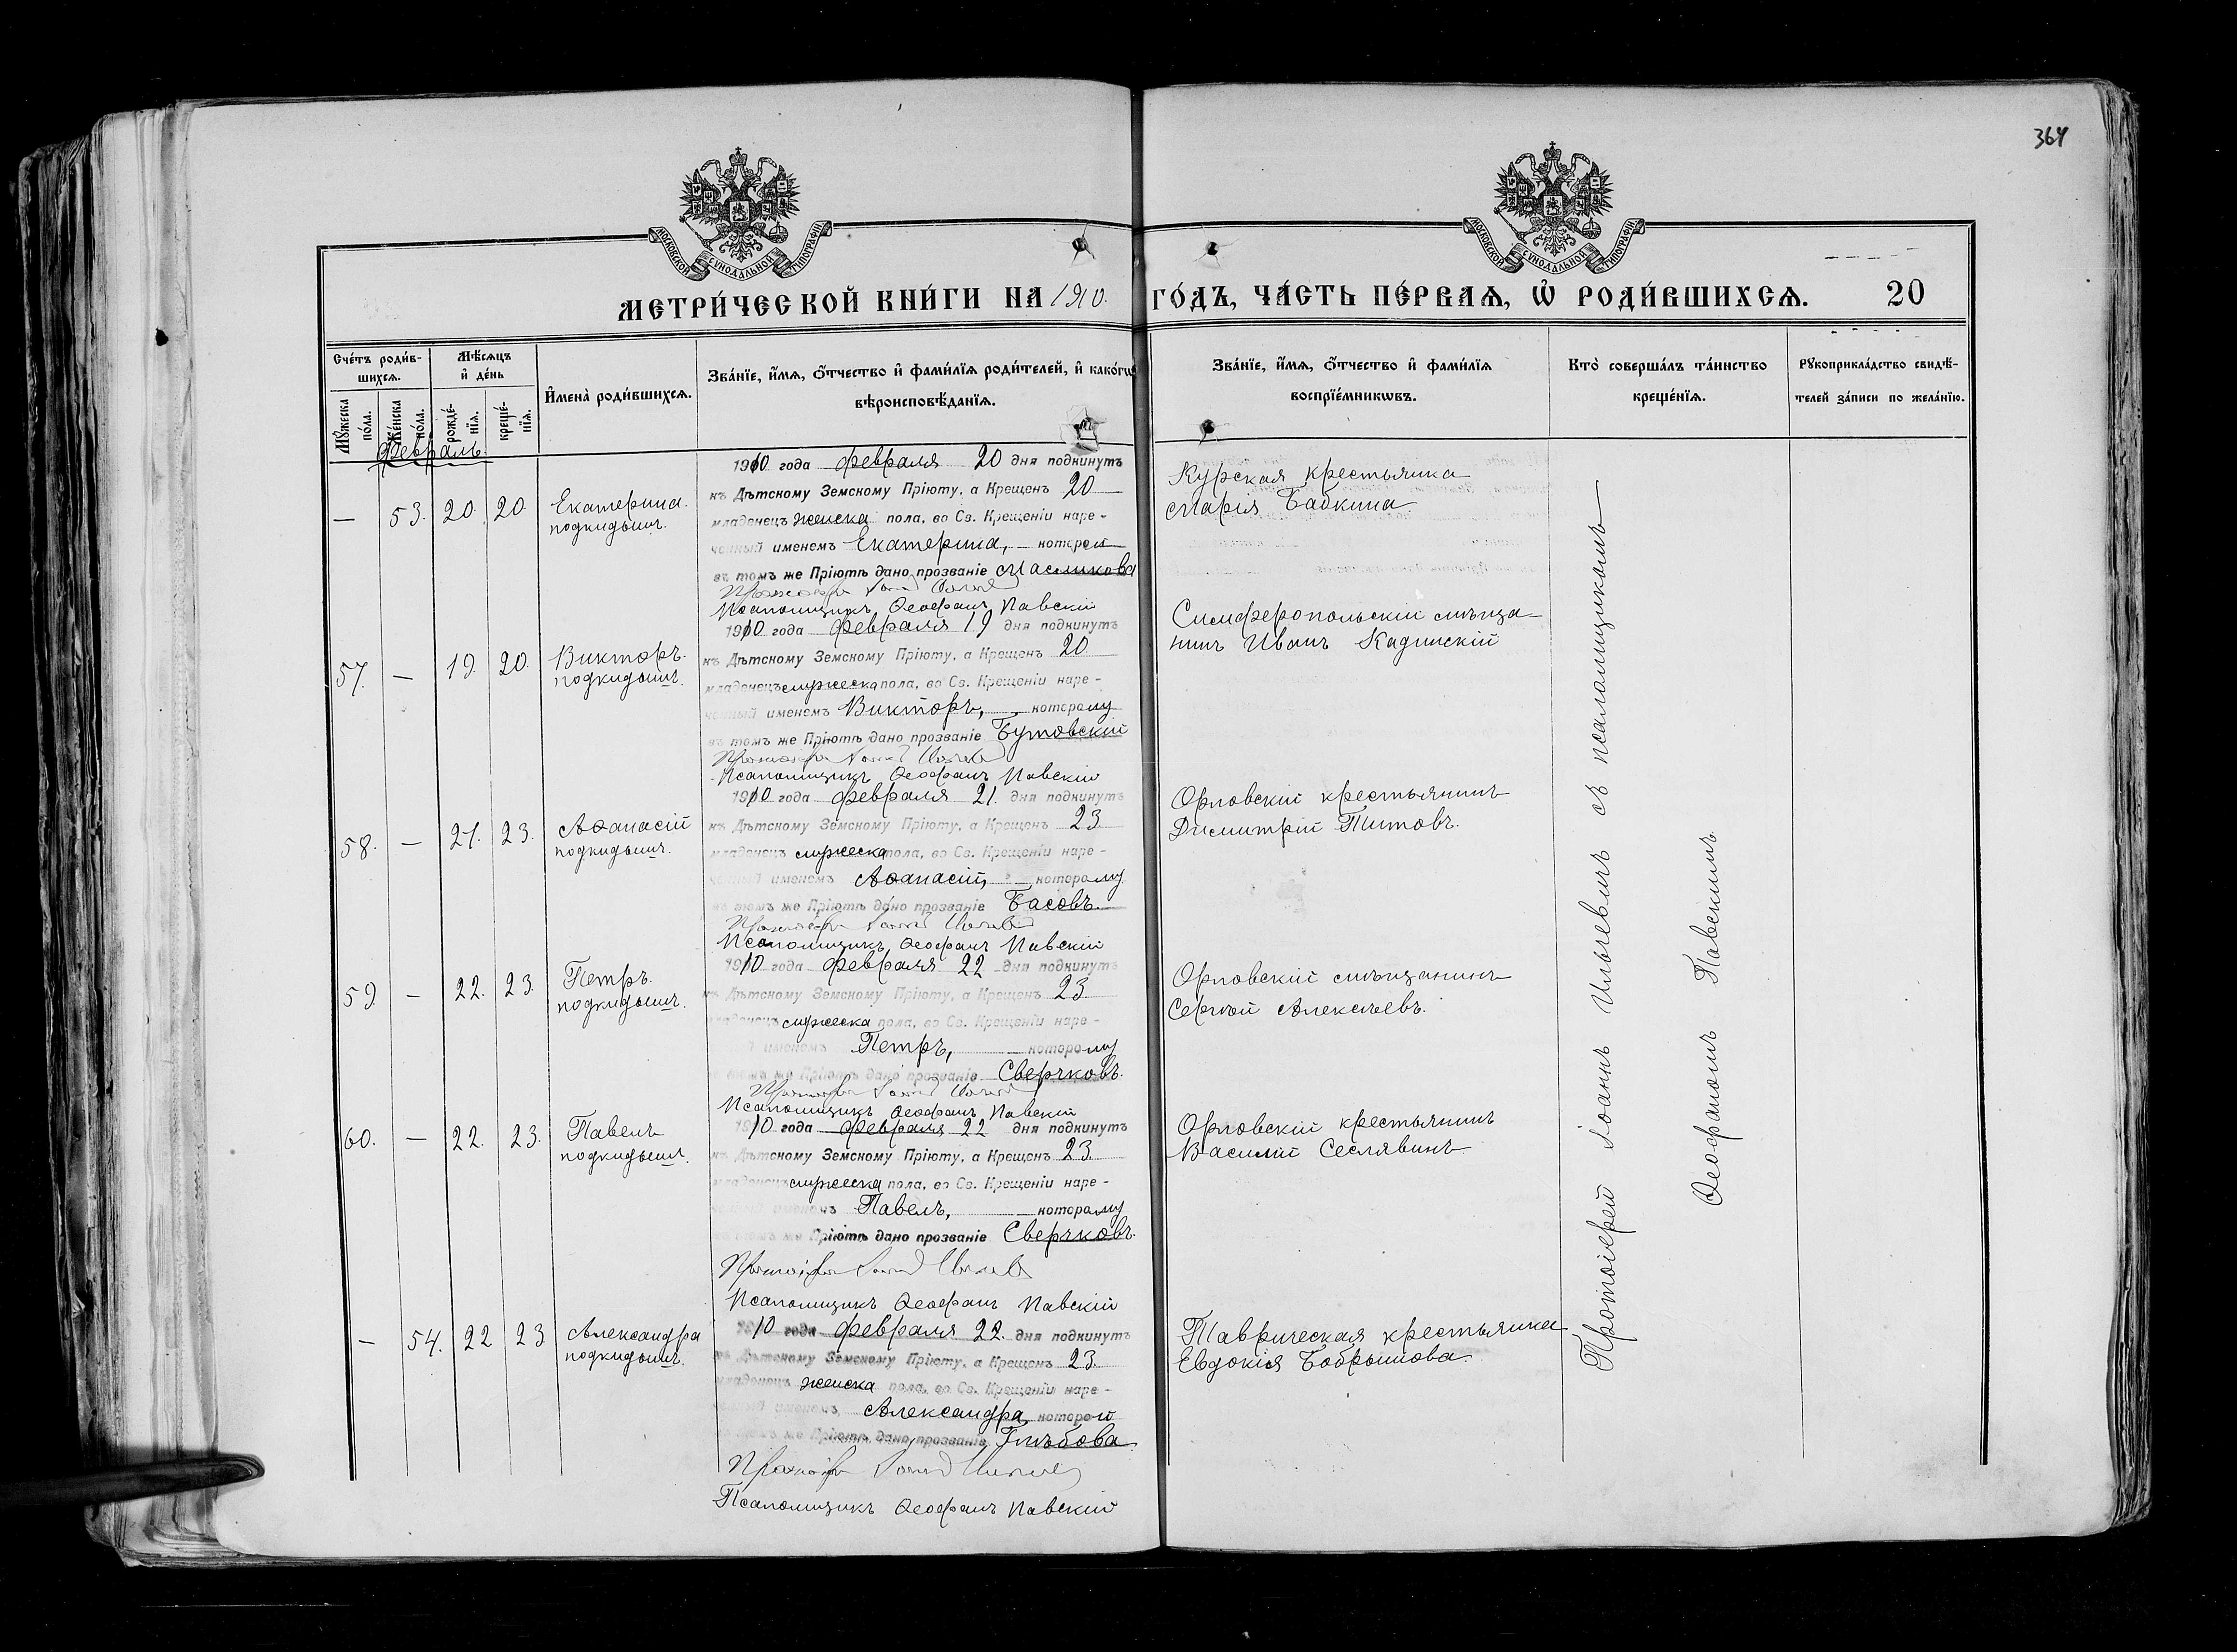 364
МОСКОВСКОЙ СѴНОДАЛЬНОЙ ТИПОГРАФІИ
МОСКОВСКОЙ СѴНОДАЛЬНОЙ ТИПОГРАФІИ
МЕТРИ́ЧЕСКОЙ КНИ́ГИ НА 1910. ГО́ДЪ, ЧА́СТЬ ПЕ́РВАѦ, Ѡ҆ РОДИ́ВШИХСѦ. 20
Сче́тъ роди́в-
шихсѧ.
Мꙋ́жеска по́ла.
Же́нска по́ла.
Мѣ́сѧцъ
и҆ де́нь
рожде́-
нїѧ.
креще́-
нїѧ.
И҆мена̀ роди́вшихсѧ.
Зва́нїе, и҆́мѧ, ѻ҆́тчество и҆ фами́лїѧ роди́телей, и҆ како́гѡ
вѣроисповѣ́данїѧ.
Зва́нїе, и҆́мѧ, ѻ҆́тчество и҆ фами́лїѧ
воспрїе́мникѡвъ.
Кто̀ соверша́лъ та́инство
креще́нїѧ.
Рꙋкоприкла́дство свидѣ́-
телей за́писи по жела́нїю.
Февраль.
— 53. 20. 20. Екатерина.
подкидышъ.
1910 года февраля 20 дня подкинутъ
къ Дѣтскому Земскому Пріюту, а Крещенъ 20
младенецъ женска пола, во Св. Крещеніи наре-
ченный именемъ Екатерина, — которой
въ томъ же Пріютѣ дано прозваніе Масликова
Псаломщикъ Ѳеофанъ Павскій
Курская крестьянка
Марія Бабкина
57. — 19. 20. Викторъ.
подкидышъ.
1910 года февраля 19 дня подкинутъ
къ Дѣтскому Земскому Пріюту, а Крещенъ 20
младенецъ мужеска пола, во Св. Крещеніи наре-
ченный именемъ Викторъ, — которому
въ томъ же Пріютѣ дано прозваніе Бутовскій
Псаломщикъ Ѳеофанъ Павскій
Симферопольскій мѣща-
нинъ Иванъ Кадинскій
58. — 21. 23. Аѳанасій
подкидышъ.
1910 года февраля 21. дня подкинутъ
къ Дѣтскому Земскому Пріюту, а Крещенъ 23
младенецъ мужеска пола, во Св. Крещеніи наре-
ченный именемъ Аѳанасій, — которому
въ томъ же Пріютѣ дано прозваніе Басовъ.
Псаломщикъ Ѳеофанъ Павскій
Орловскій крестьянинъ
Димитрій Титовъ.
59. — 22. 23. Петръ.
подкидышъ.
1910 года февраля 22 дня подкинутъ
къ Дѣтскому Земскому Пріюту, а Крещенъ 23
младенецъ мужеска пола, во Св. Крещеніи наре-
именемъ Петръ, — которому
въ томъ же Пріютѣ дано прозваніе Сверчковъ.
Псаломщикъ Ѳеофанъ Павскій
Орловскій мѣщанинъ
Сергѣй Алексѣевъ.
60. — 22. 23. Павелъ
подкидышъ.
1910 года февраля 22 дня подкинутъ
къ Дѣтскому Земскому Пріюту, а Крещенъ 23.
младенецъ мужеска пола, во Св. Крещеніи наре-
ченный именемъ Павелъ, — которому
въ томъ же Пріютѣ дано прозваніе Сверчковъ.
Псаломщикъ Ѳеофанъ Павскій
Орловскій крестьянинъ
Василій Сеславинъ
— 54. 22 23 Александра
подкидышъ.
1910 года февраля 22. дня подкинутъ
къ Дѣтскому Земскому Пріюту, а Крещенъ 23.
младенецъ женска пола, во Св. Крещеніи наре-
ченный именемъ Александра, которой
въ томъ же Пріютѣ дано прозваніе Глѣбова
Псаломщикъ Ѳеофанъ Павскій
Таврическая крестьянка
Евдокія Бобрышова.
Протоіерей Іоаннъ Ильчевичъ съ псаломщикомъ
Ѳеофаномъ Павскимъ.